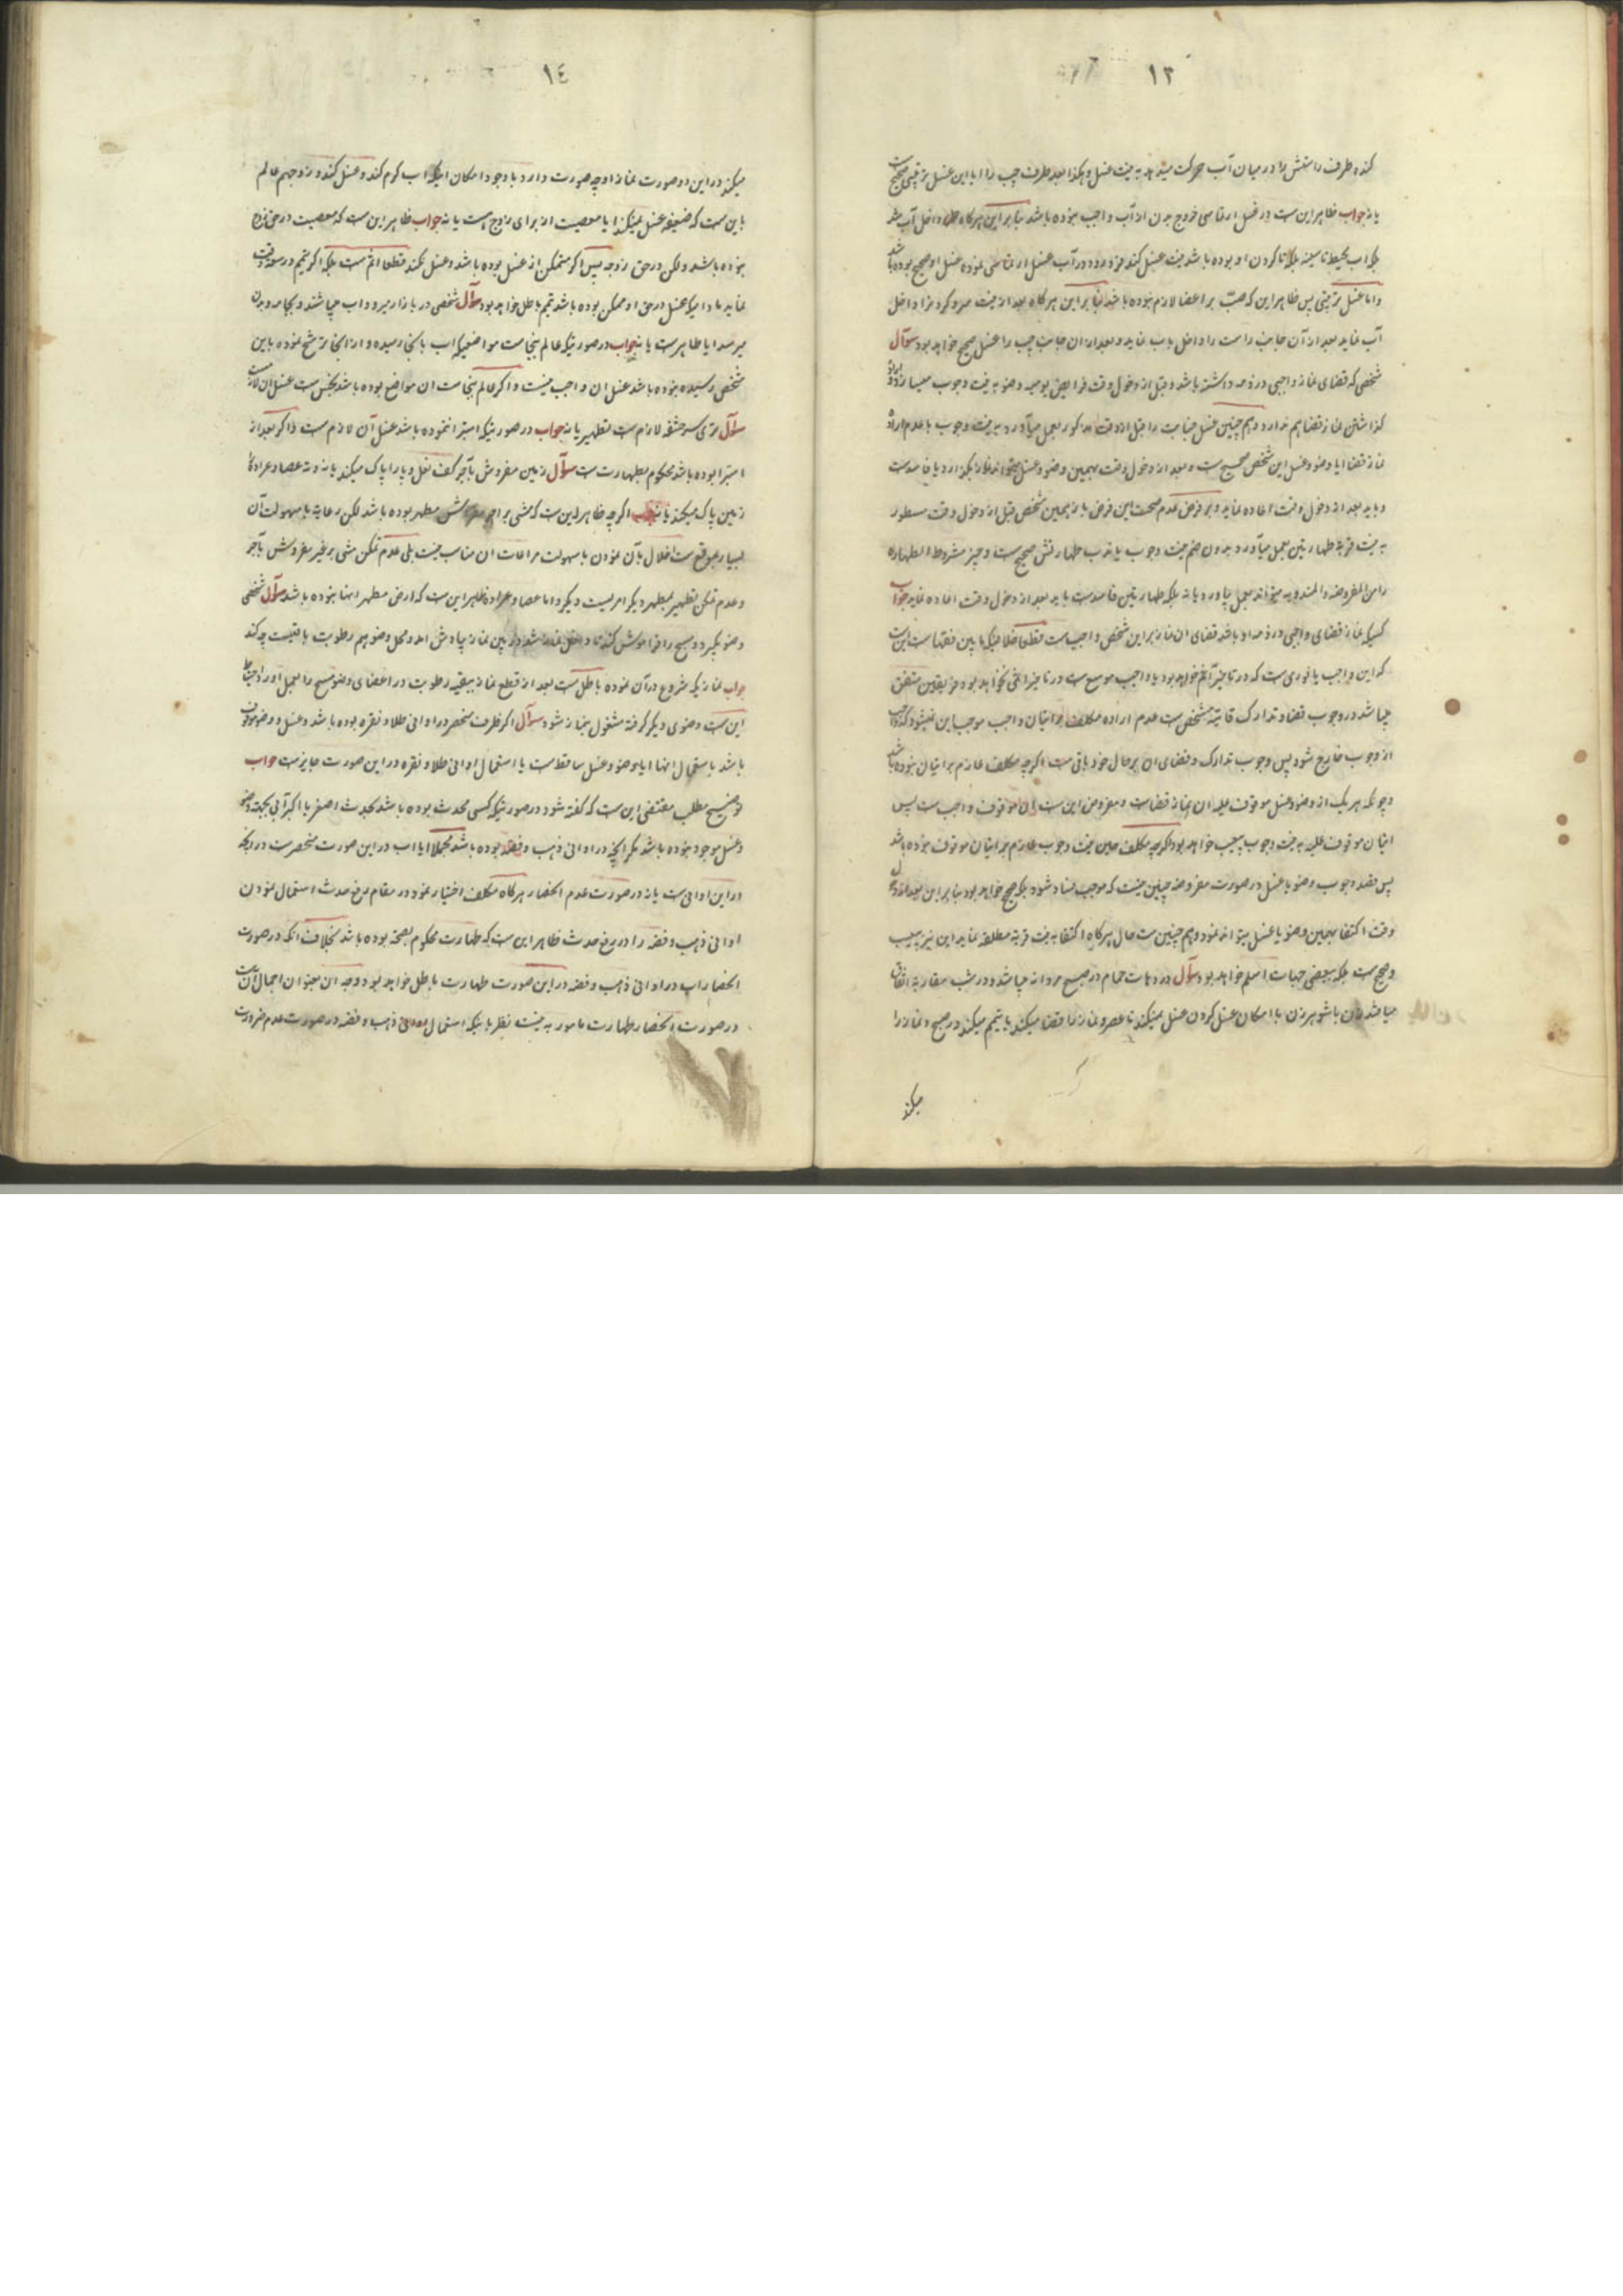 ١٣
کند طرف راستش را در میان آب حرکت میدهد به نیت غسل و هکذا بعد طرف چپ را ایا این غسل ترتیبی صحیح است
یا نه جواب ظاهر این ست در غسل ارتماسی خروج بدن از آب واجب نبوده باشد بنابراین هرگاه داخل آب شد
بلکه اب محیط تا سینه بلکه تا گردن او بوده باشد نیت غسل کند فرو رود در آب غسل ارتماسی نموده غسل او صحیح بوده باشد
و اما غسل ترتیبی پس ظاهر این که صب بر اعضا لازم نبوده باشد بنابراین هرگاه بعد از نیت سر و گردن را داخل
آب نماید بعد از آن جانب راست را داخل باب نماید و بعد از ان جانب چپ را غسل صحیح خواهد بود سوآل
شخصی که قضای نماز واجبی در ذمه داشته باشد و قبل از دخول وقت فرایض یومیه وضو به نیت وجوب میسازد و اراده
گذاشتن نماز قضا هم ندارد و هم چنین غسل جنابت را قبل از وقت مذکور بعمل میآورد به نیت وجوب با عدم اراده
نماز قضا ایا وضو و غسل این شخص صحیح ست و بعد از دخول وقت بهمین وضو و غسل میتواند نماز بگذارد یا فاسدست
و باید بعد از دخول وقت اعاده نماید و بر فرض عدم صحت این فرض باز همین شخص قبل از دخول وقت مسطور
به نیت قربة طهارتین بعمل میآورد بدون ضم نیت وجوب یا ندب طهارتش صحیح ست و چیز مشروط بطهاره
را من المفروضه و المندوبه میتواند بعمل بیاورد یا نه بلکه طهارتین فاسدست باید بعد از دخول وقت اعاده نماید جواب
کسیکه نماز قضای واجبی در ذمه او باشد قضای ان نماز بر این شخص واجب ست قطعا خلافیکه مابین فقهاست این است
که این واجب یا فوری ست که در تاخیر آثم خواهد بود یا واجب موسع ست در تاخیر اثمی نخواهد بود فریقین متفق
میباشد در وجوب قضا و تدارک فائته مشخص ست عدم اراده مکلف بر اتیان واجب موجب این نمیشود که واجب
از وجوب خارج شود پس وجوب تدارک و قضای ان بر حال خود باقی ست اگرچه مکلف عازم بر اتیان نبوده باشد
و چونکه هر یک از وضو و غسل موقوف علیه ان نماز قضاست و مفروض این ست ان موقوف واجب ست پس
اتیان موقوف علیه به نیت وجوب بیعیب خواهد بود اگرچه مکلف حین نیت وجوب عازم بر اتیان موقوف نبوده باشد
پس قصد وجوب وضو یا غسل در صورت مفروضه چنین نیست که موجب فساد شود بلکه صحیح خواهد بود بنابراین بعد دخول
وقت اکتفا بهمین وضو یا غسل میتواند نمود و هم چنین ست حال هرگاه اکتفا به نیت قربة مطلقه نماید این نیز بیعیب
و صحیح ست بلکه ببعضی جهات اسلم خواهد بود سوآل در دهات حمام در صبح مردانه میباشد و در شب مقاربه اتفاق
میافتد زن باشوهر زن با امکان غسل کردن غسل نمیکند تا عصر و نماز را قضا میکند یا تیمم میکند در صبح و نماز را
میکند
١٤
میکند در این دو صورت نماز او چه صورت دارد با وجود امکان اینکه اب گرم کند و غسل کند و زوج هم عالم
باین ست که ضعیفه غسل نمیکند ایا معصیت از برای زوج هست یا نه جواب ظاهر این ست که معصیت در حق زوج
نبوده باشد ولکن در حق زوجه پس اگر متمکن از غسل بوده باشد و غسل نکند قطعا اثم ست بلکه اگر تیمم در سعه وقت
نماید مادامیکه غسل در حق او ممکن بوده باشد تیمم باطل خواهد بود سوآل شخصی در بازار میرود و اب میپاشند و بجامه و بدن
میرسد ایا طاهر ست یا نه جواب در صورتیکه عالم بنجاست مواضعیکه اب بانجا رسیده و از انجا ترشح نموده باین
شخص رسیده نبوده باشد غسل ان واجب نیست و اگر عالم بنجاست ان مواضع بوده باشد نجس ست غسل ان لازمست
سوآل تری سر حشفه لازم ست تطهیر یا نه جواب در صورتیکه استبرا ننموده باشد غسل آن لازم ست و اگر بعد از
استبرا بوده باشد محکوم بطهارت ست سوآل زمین مفروش بآجر کف نعل و پا را پاک میکند یا نه و ته عصا و عراده
زمین پاک میکند یا نه جواب اگرچه ظاهر این ست که مشی بر اجر مطهر بوده باشد لکن رعایة با سهولت آن
بسیار بموقع ست اخلال بآن نمودن با سهولت مراعات ان مناسب نیست بلی عدم تمکن مشی بر غیر مفروش بآجر
و عدم تمکن تطهیر بمطهر دیگر امریست دیگر و اما عصا و عراده ظاهر این ست که ارض مطهر اینها نبوده باشد سوآل شخصی
وضو بگیرد و مسح را فراموش کند تا داخل نماز شد در بین نماز بیادش امد و محل وضو هم رطوبت باقیست چه کند
جواب نمازیکه شروع در آن نموده باطل ست بعد از قطع نماز ببقیه رطوبت در اعضای وضو مسح را بعمل اورد احتیاط
این ست وضوی دیگر گرفته مشغول بنماز شود سوآل اگر ظرف منحصر در اوانی طلا و نقره بوده باشد و غسل و وضو موقوف
باشد باستعمال انها ایا وضو و غسل ساقط ست یا استعمال اوانی طلا و نقره در این صورت جایزست جواب
توضیح مطلب مقتضی این ست که گفته شود در صورتیکه کسی محدث بوده باشد بحدث اصغر یا اکبر آبی بجهت وضو
و غسل موجود نبوده باشد مگر انچه در اوانی ذهب و فضه بوده باشد مجملا ایا اب در این صورت منحصرست در انچه
در این اوانی ست یا نه در صورت عدم انحصار هرگاه مکلف اختیار نمود در مقام رفع حدث استعمال نمودن
اوانی ذهب و فضه را در رفع حدث ظاهر این ست که طهارت محکوم بصحة بوده باشد بخلاف انکه در صورت
انحصار اب در اوانی ذهب و فضه در این صورت طهارت باطل خواهد بود وجه ان بعنوان اجمال آن ست
در صورت انحصار طهارت مامور به نیست نظر باینکه استعمال اوانی ذهب و فضه در صورت عدم ضرورت